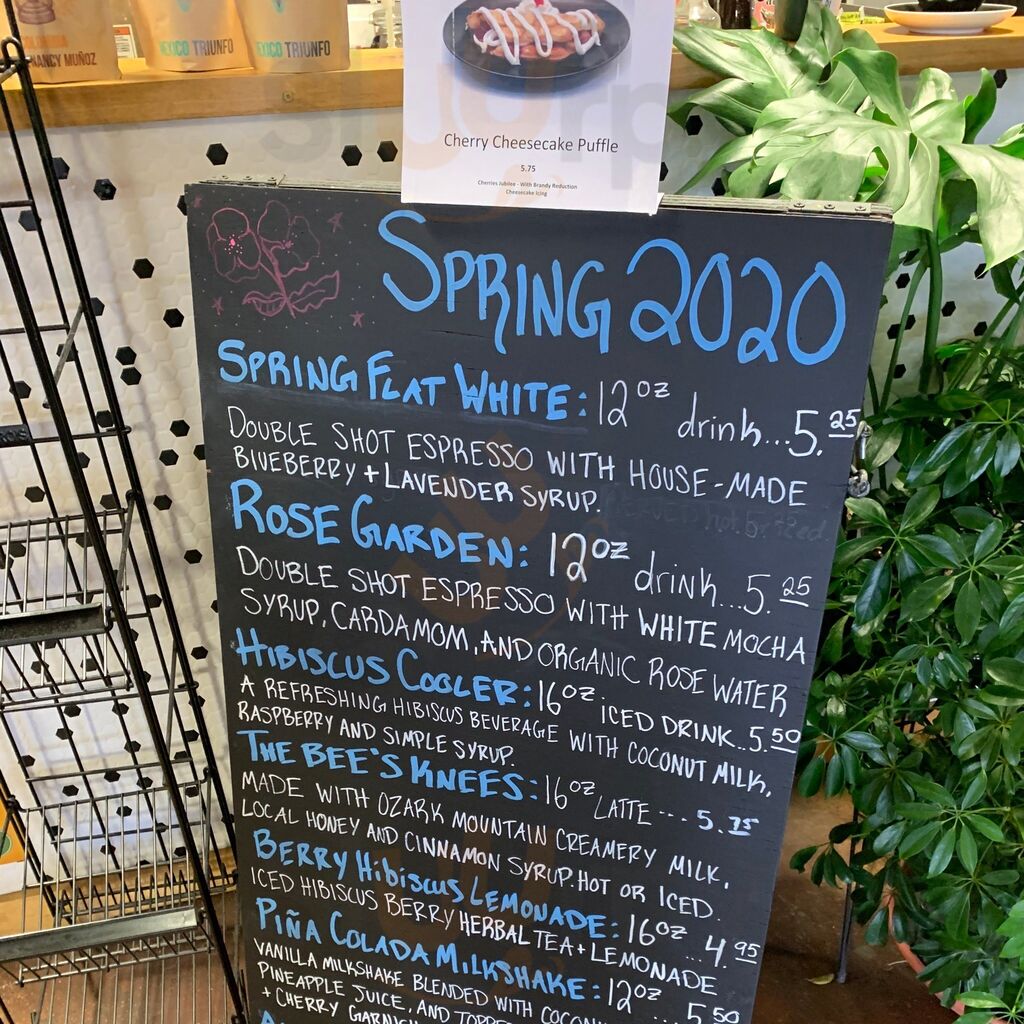 NANCY MUÑOZ
MEXICO TRIUNFO
MEXICO TRIUNFO
Cherry Cheesecake Puffle
5.75
Cherries Jubilee - With Brandy Reduction
Cheesecake Icing
SPRING 2020
SPRING FLAT WHITE: 12oz drink...5.25
DOUBLE SHOT ESPRESSO WITH HOUSE-MADE
BLUEBERRY + LAVENDER SYRUP.
ROSE GARDEN: 12oz drink...5.25
DOUBLE SHOT ESPRESSO WITH WHITE MOCHA
SYRUP, CARDAMOM, AND ORGANIC ROSE WATER
HIBISCUS COOLER: 16oz ICED DRINK..5.50
A REFRESHING HIBISCUS BEVERAGE WITH COCONUT MILK,
RASPBERRY AND SIMPLE SYRUP.
THE BEE'S KNEES: 16oz LATTE ---- 5.75
MADE WITH OZARK MOUNTAIN CREAMERY MILK,
LOCAL HONEY AND CINNAMON SYRUP. HOT OR ICED.
BERRY HIBISCUS LEMONADE: 16oz ...4.95
ICED HIBISCUS BERRY HERBAL TEA + LEMONADE
PIÑA COLADA MILKSHAKE: 12oz 5.50
VANILLA MILKSHAKE BLENDED WITH
PINEAPPLE JUICE, AND
+ CHERRY